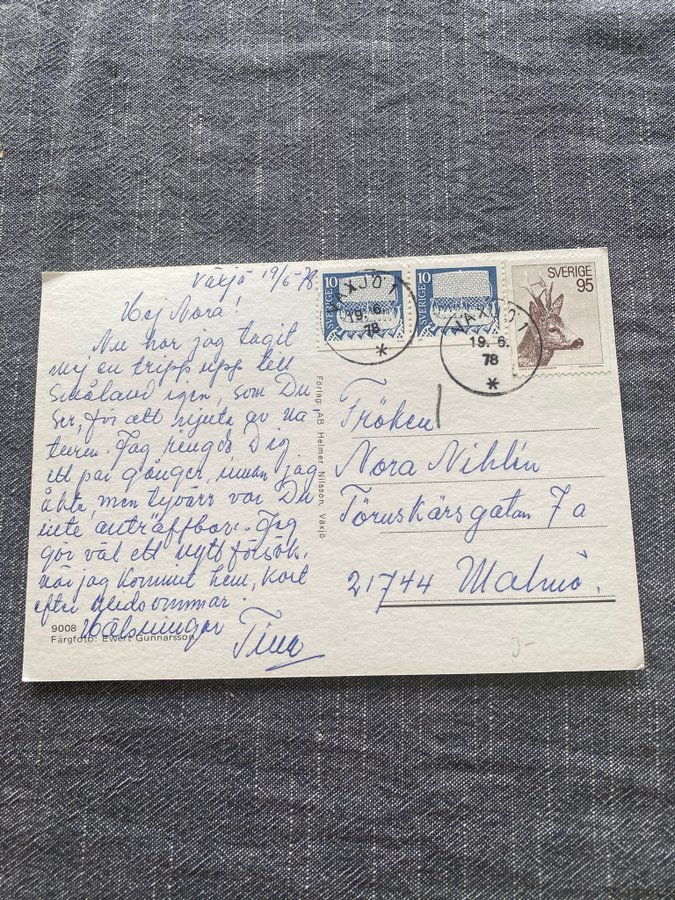 Växjö 19/6-78
Hej Nora!
Nu har jag tagit
mej en tripp upp till
Småland igen, som Du
ser, för att njuta av na
turen. Jag ringde Dig
ett par gånger, innan jag
åkte, men tyvärr var Du
inte anträffbar. Jag
gör väl ett nytt försök,
när jag kommit hem, kort
efter Midsommar.
Hälsningar
Tina
9008
Färgfoto: Ewert Gunnarsson
Förlag: AB Helmer Nilsson, Växjö
SVERIGE 10
SVERIGE 10
SVERIGE
95
VÄXJÖ 1
19. 6.
78
VÄXJÖ 1
19. 6.
78
Fröken
Nora Nihlén
Töruskärsgatan 7a
21744 Malmö.